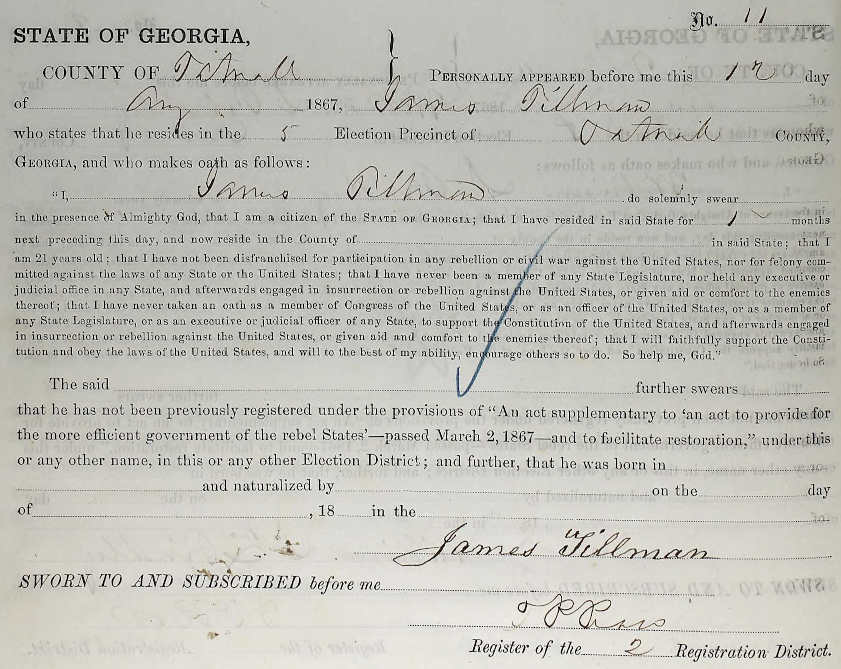 No. 11
STATE OF GEORGIA,
COUNTY OF Tatnall PERSONALLY APPEARED before me this 12 day
of Aug 1867, James Tillman
who states that he resides in the 5 Election Precinct of Tatnall COUNTY,
GEORGIA, and who makes oath as follows:
"I, James Tillman do solemnly swear
in the presence of Almighty God, that I am a citizen of the STATE OF GEORGIA; that I have resided in said State for months
next preceding this day, and now reside in the County of in said State; that I
am 21 years old; that I have not been disfranchised for participation in any rebellion or civil war against the United States, nor for felony com-
mitted against the laws of any State or the United States; that I have never been a member of any State Legislature, nor held any executive or
judicial office in any State, and afterwards engaged in insurrection or rebellion against the United States, or given aid or comfort to the enemies
thereof; that I have never taken an oath as a member of Congress of the United States, or as an officer of the United States, or as a member of
any State Legislature, or as an executive or judicial officer of any State, to support the Constitution of the United States, and afterwards engaged
in insurrection or rebellion against the United States, or given aid and comfort to the enemies thereof; that I will faithfully support the Consti-
tution and obey the laws of the United States, and will to the best of my ability, encourage others so to do. So help me, God."
The said further swears
that he has not been previously registered under the provisions of "An act supplementary to 'an act to provide for
the more efficient government of the rebel States'—passed March 2, 1867—and to facilitate restoration," under this
or any other name, in this or any other Election District; and further, that he was born in
and naturalized by on the day
of , 18 in the
James Tillman
SWORN TO AND SUBSCRIBED before me
Register of the 2 Registration District.